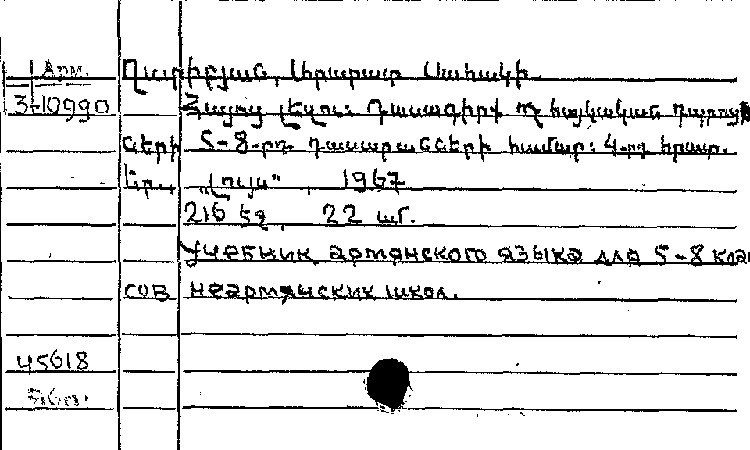 Арм. Ղարիբյան, Արարատ Սահակի.
3-10990 Հայոց լեզու: Դասագիրք ոչ հայկական դպրոց
ների 5-8-րդ դասարանների համար: 4-րդ հրատ.
Եր., „Լույս“, 1967
216 էջ, 22 սմ.
Учебник армянского языка для 5-8 клас
сов неармянских школ.
45618